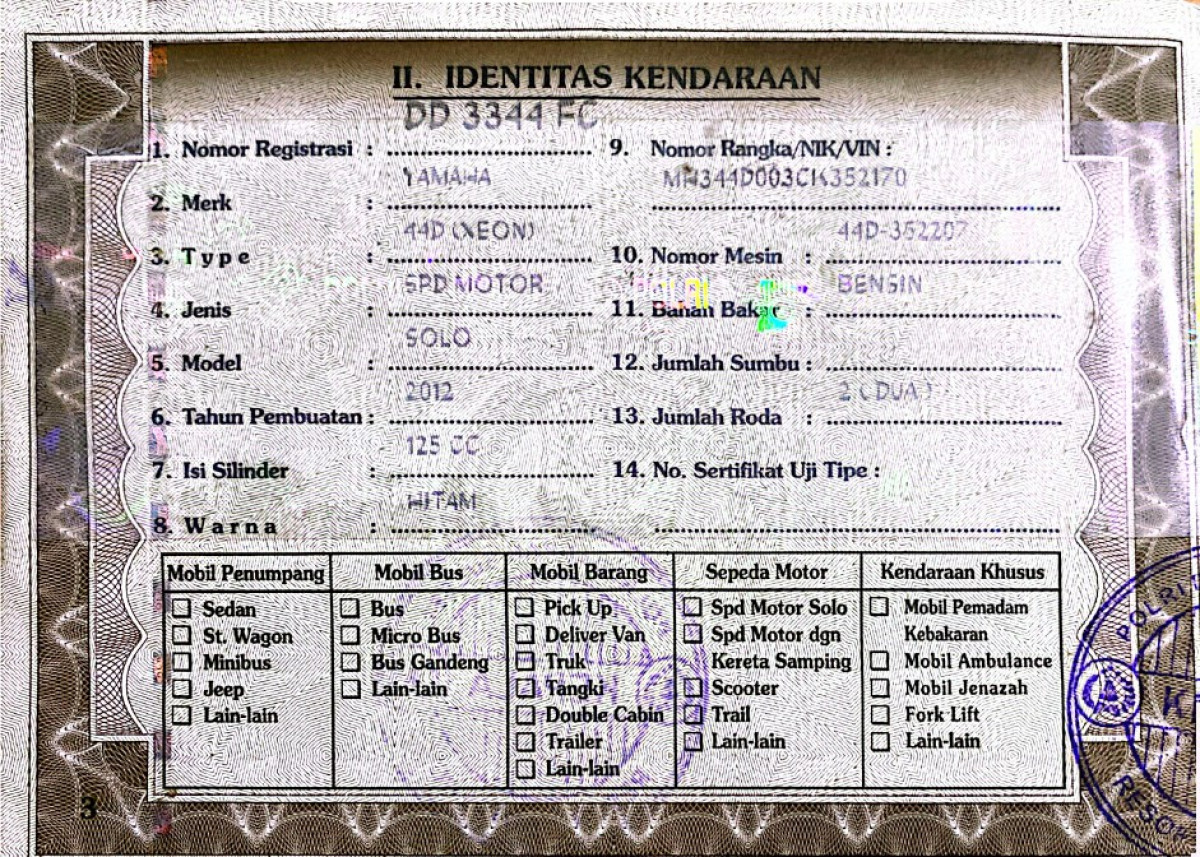 II. IDENTITAS KENDARAAN
DD 3344 FC
1. Nomor Registrasi :
YAMAHA
2. Merk :
44D (XEON)
3. Type :
SPD MOTOR
4. Jenis :
SOLO
5. Model :
2012
6. Tahun Pembuatan :
125 CC
7. Isi Silinder :
HITAM
8. Warna :
9. Nomor Rangka/NIK/VIN :
MH344D003CK352170
44D-352207
10. Nomor Mesin :
BENSIN
11. Bahan Bakar :
12. Jumlah Sumbu :
2 ( DUA )
13. Jumlah Roda :
14. No. Sertifikat Uji Tipe :
Mobil Penumpang
Sedan
St. Wagon
Minibus
Jeep
Lain-lain
Mobil Bus
Bus
Micro Bus
Bus Gandeng
Lain-lain
Mobil Barang
Pick Up
Deliver Van
Truk
Tangki
Double Cabin
Trailer
Lain-lain
Sepeda Motor
Spd Motor Solo
Spd Motor dgn
Kereta Samping
Scooter
Trail
Lain-lain
Kendaraan Khusus
Mobil Pemadam
Kebakaran
Mobil Ambulance
Mobil Jenazah
Fork Lift
Lain-lain
POLRI
3